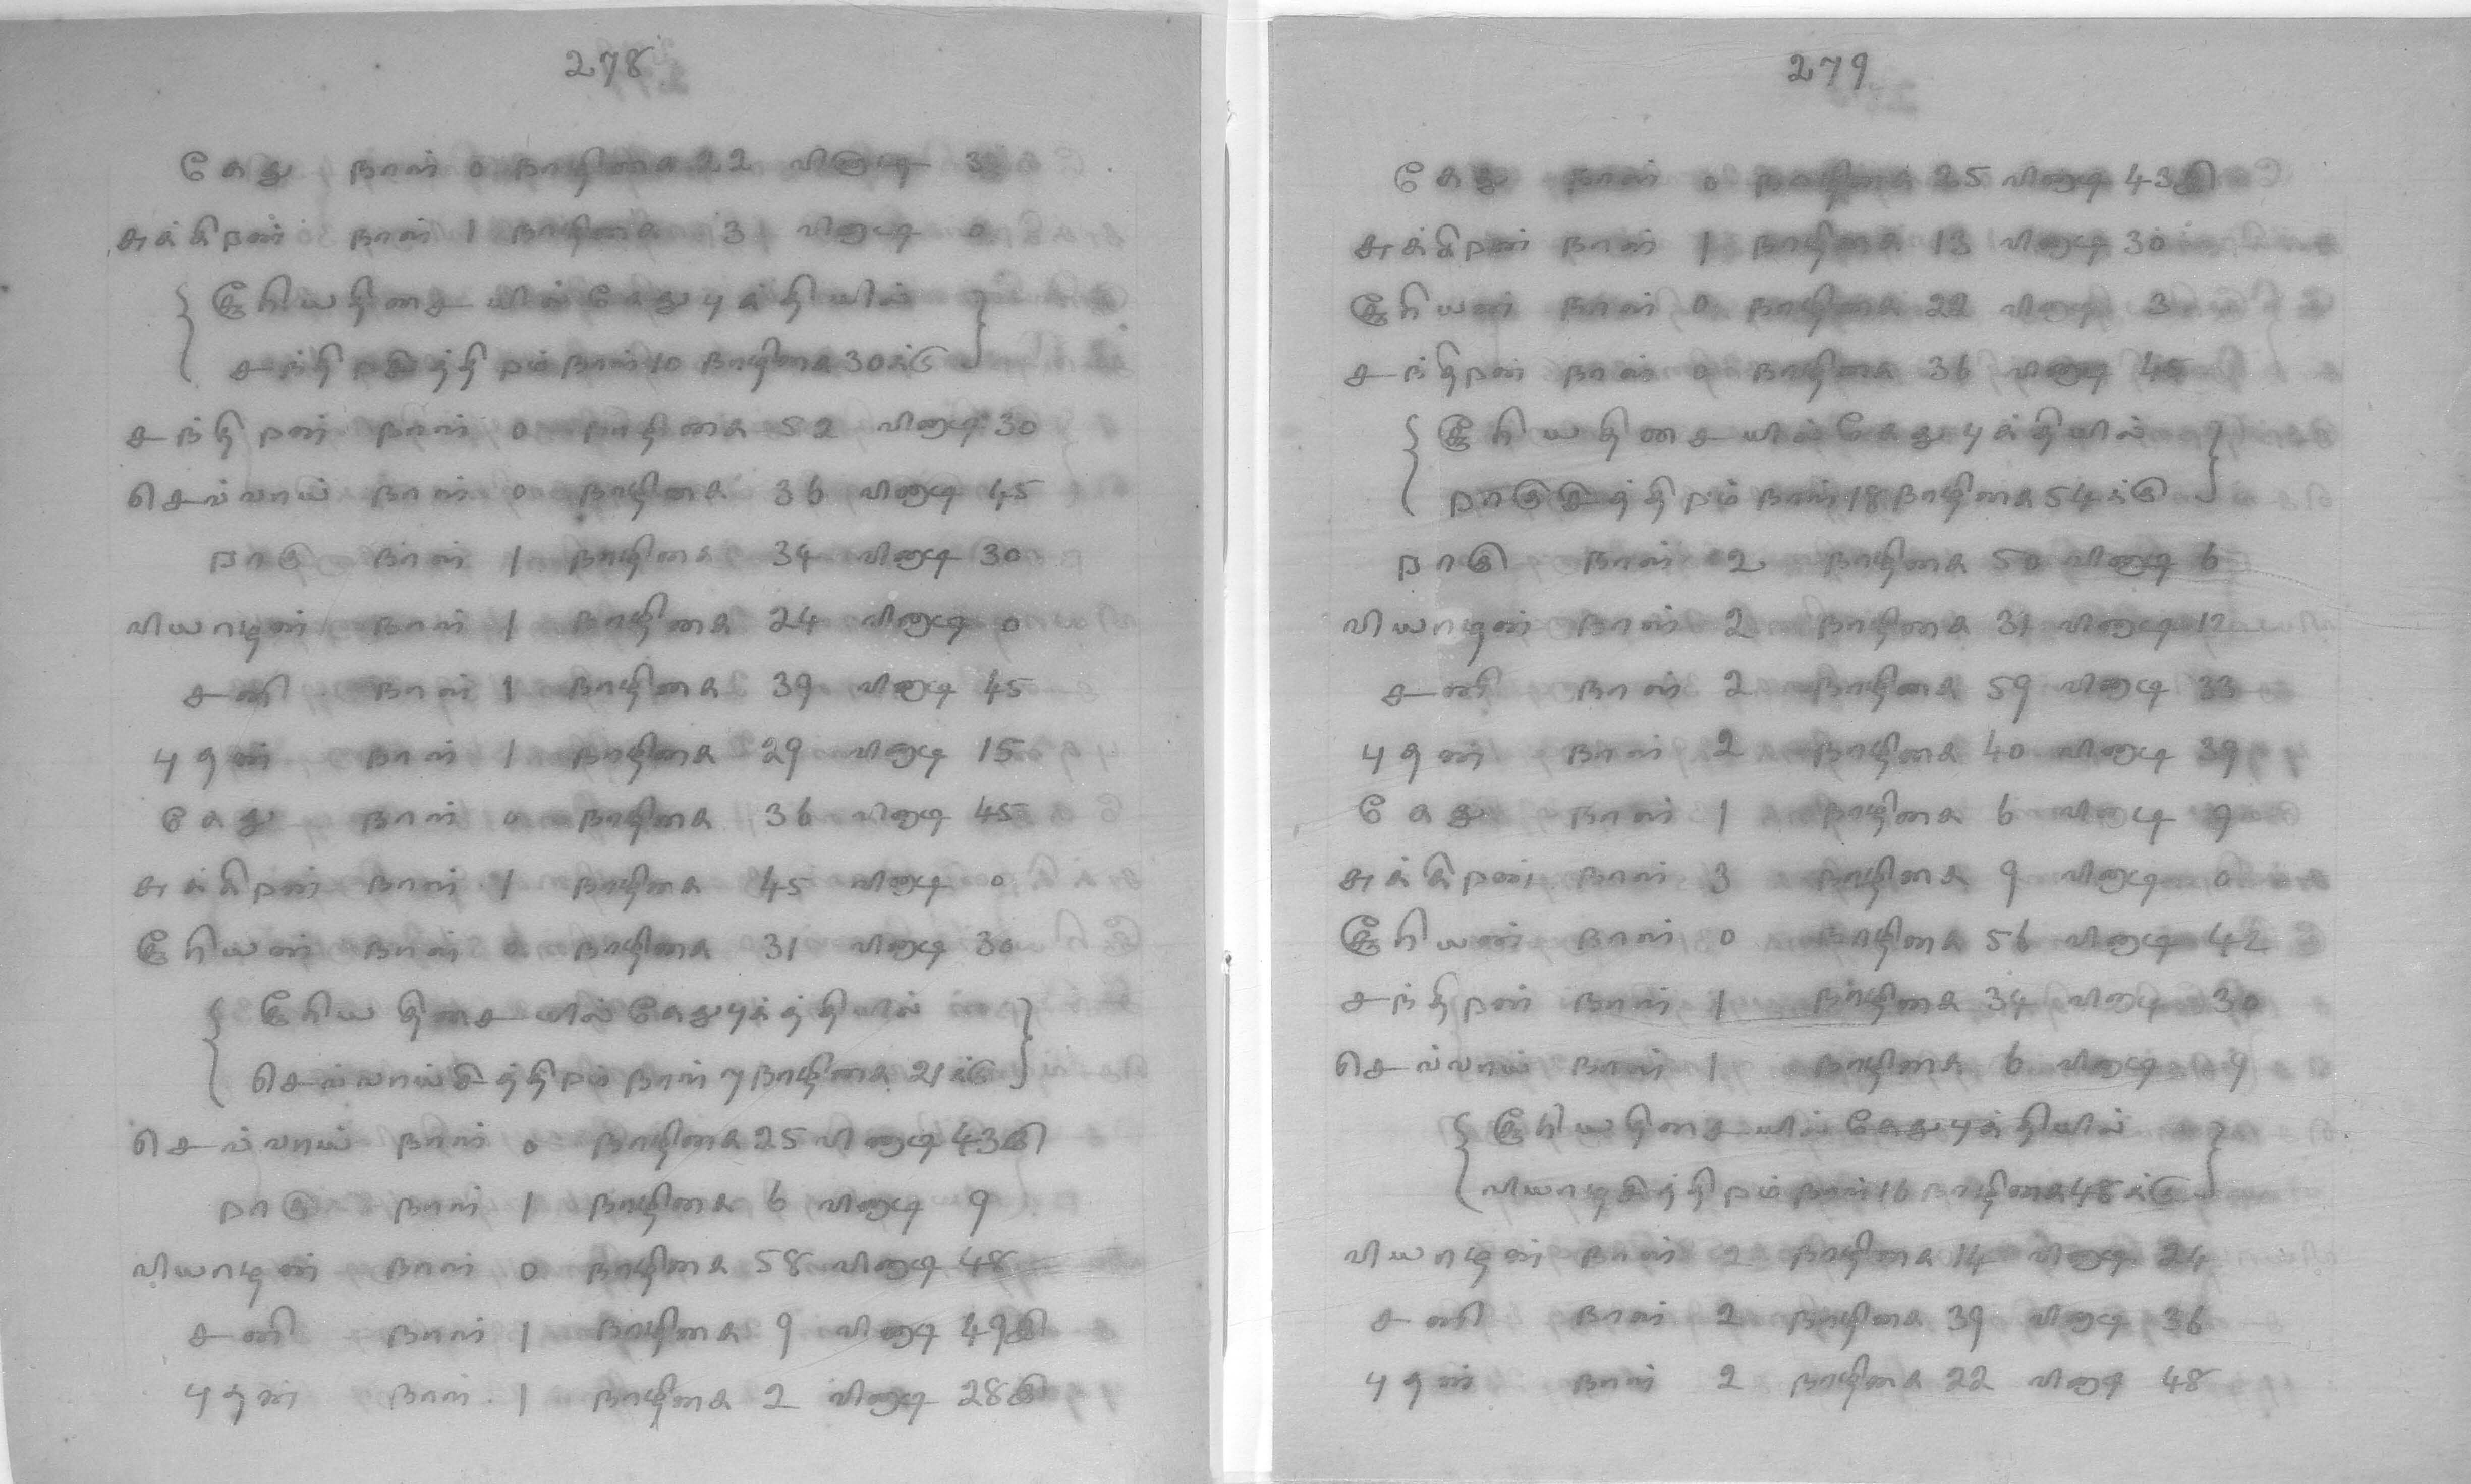 278
கேது நாள் 0 நாழிகை 22 வினாடி 3
சுக்கிரன் நாள் 1 நாழிகை 3 வினாடி 0
{ சூரியதிசையில் கேதுபுக்தியில் }
{ சந்திரசித்திரம் நாள் 10 நாழிகை 30க்கு }
சந்திரன் நாள் 0 நாழிகை 52 வினாடி 30
செவ்வாய் நாள் 0 நாழிகை 36 வினாடி 45
ராகு நாள் 1 நாழிகை 34 வினாடி 30
வியாழன் நாள் 1 நாழிகை 24 வினாடி 0
சனி நாள் 1 நாழிகை 39 வினாடி 45
புதன் நாள் 1 நாழிகை 29 வினாடி 15
கேது நாள் 0 நாழிகை 36 வினாடி 45
சுக்கிரன் நாள் 1 நாழிகை 45 வினாடி 0
சூரியன் நாள் 0 நாழிகை 31 வினாடி 30
{ சூரியதிசையில் கேதுபுக்த்தியில் }
{ செவ்வாய்சித்திரம் நாள் 7 நாழிகை 21க்கு }
செவ்வாய் நாள் 0 நாழிகை 25 வினாடி 43இ
ராகு நாள் 1 நாழிகை 6 வினாடி 9
வியாழன் நாள் 0 நாழிகை 58 வினாடி 48
சனி நாள் 1 நாழிகை 9 வினாடி 49இ
புதன் நாள் 1 நாழிகை 2 வினாடி 28இ
279
கேது நாள் 0 நாழிகை 25 வினாடி 43இ
சுக்கிரன் நாள் 1 நாழிகை 13 வினாடி 30
சூரியன் நாள் 0 நாழிகை 22 வினாடி 3
சந்திரன் நாள் 0 நாழிகை 36 வினாடி 45
{ சூரியதிசையில் கேதுபுக்தியில் }
{ ராகுசித்திரம் நாள் 18 நாழிகை 54க்கு }
ராகு நாள் 2 நாழிகை 50 வினாடி 6
வியாழன் நாள் 2 நாழிகை 31 வினாடி 12
சனி நாள் 2 நாழிகை 59 வினாடி 33
புதன் நாள் 2 நாழிகை 40 வினாடி 39
கேது நாள் 1 நாழிகை 6 வினாடி 9
சுக்கிரன் நாள் 3 நாழிகை 9 வினாடி 0
சூரியன் நாள் 0 நாழிகை 56 வினாடி 42
சந்திரன் நாள் 1 நாழிகை 34 வினாடி 30
செவ்வாய் நாள் 1 நாழிகை 6 வினாடி 9
{ சூரியதிசையில் கேதுபுக்தியில் }
{ வியாழசித்திரம் நாள் 16 நாழிகை 48க்கு }
வியாழன் நாள் 2 நாழிகை 14 வினாடி 24
சனி நாள் 2 நாழிகை 39 வினாடி 36
புதன் நாள் 2 நாழிகை 22 வினாடி 48